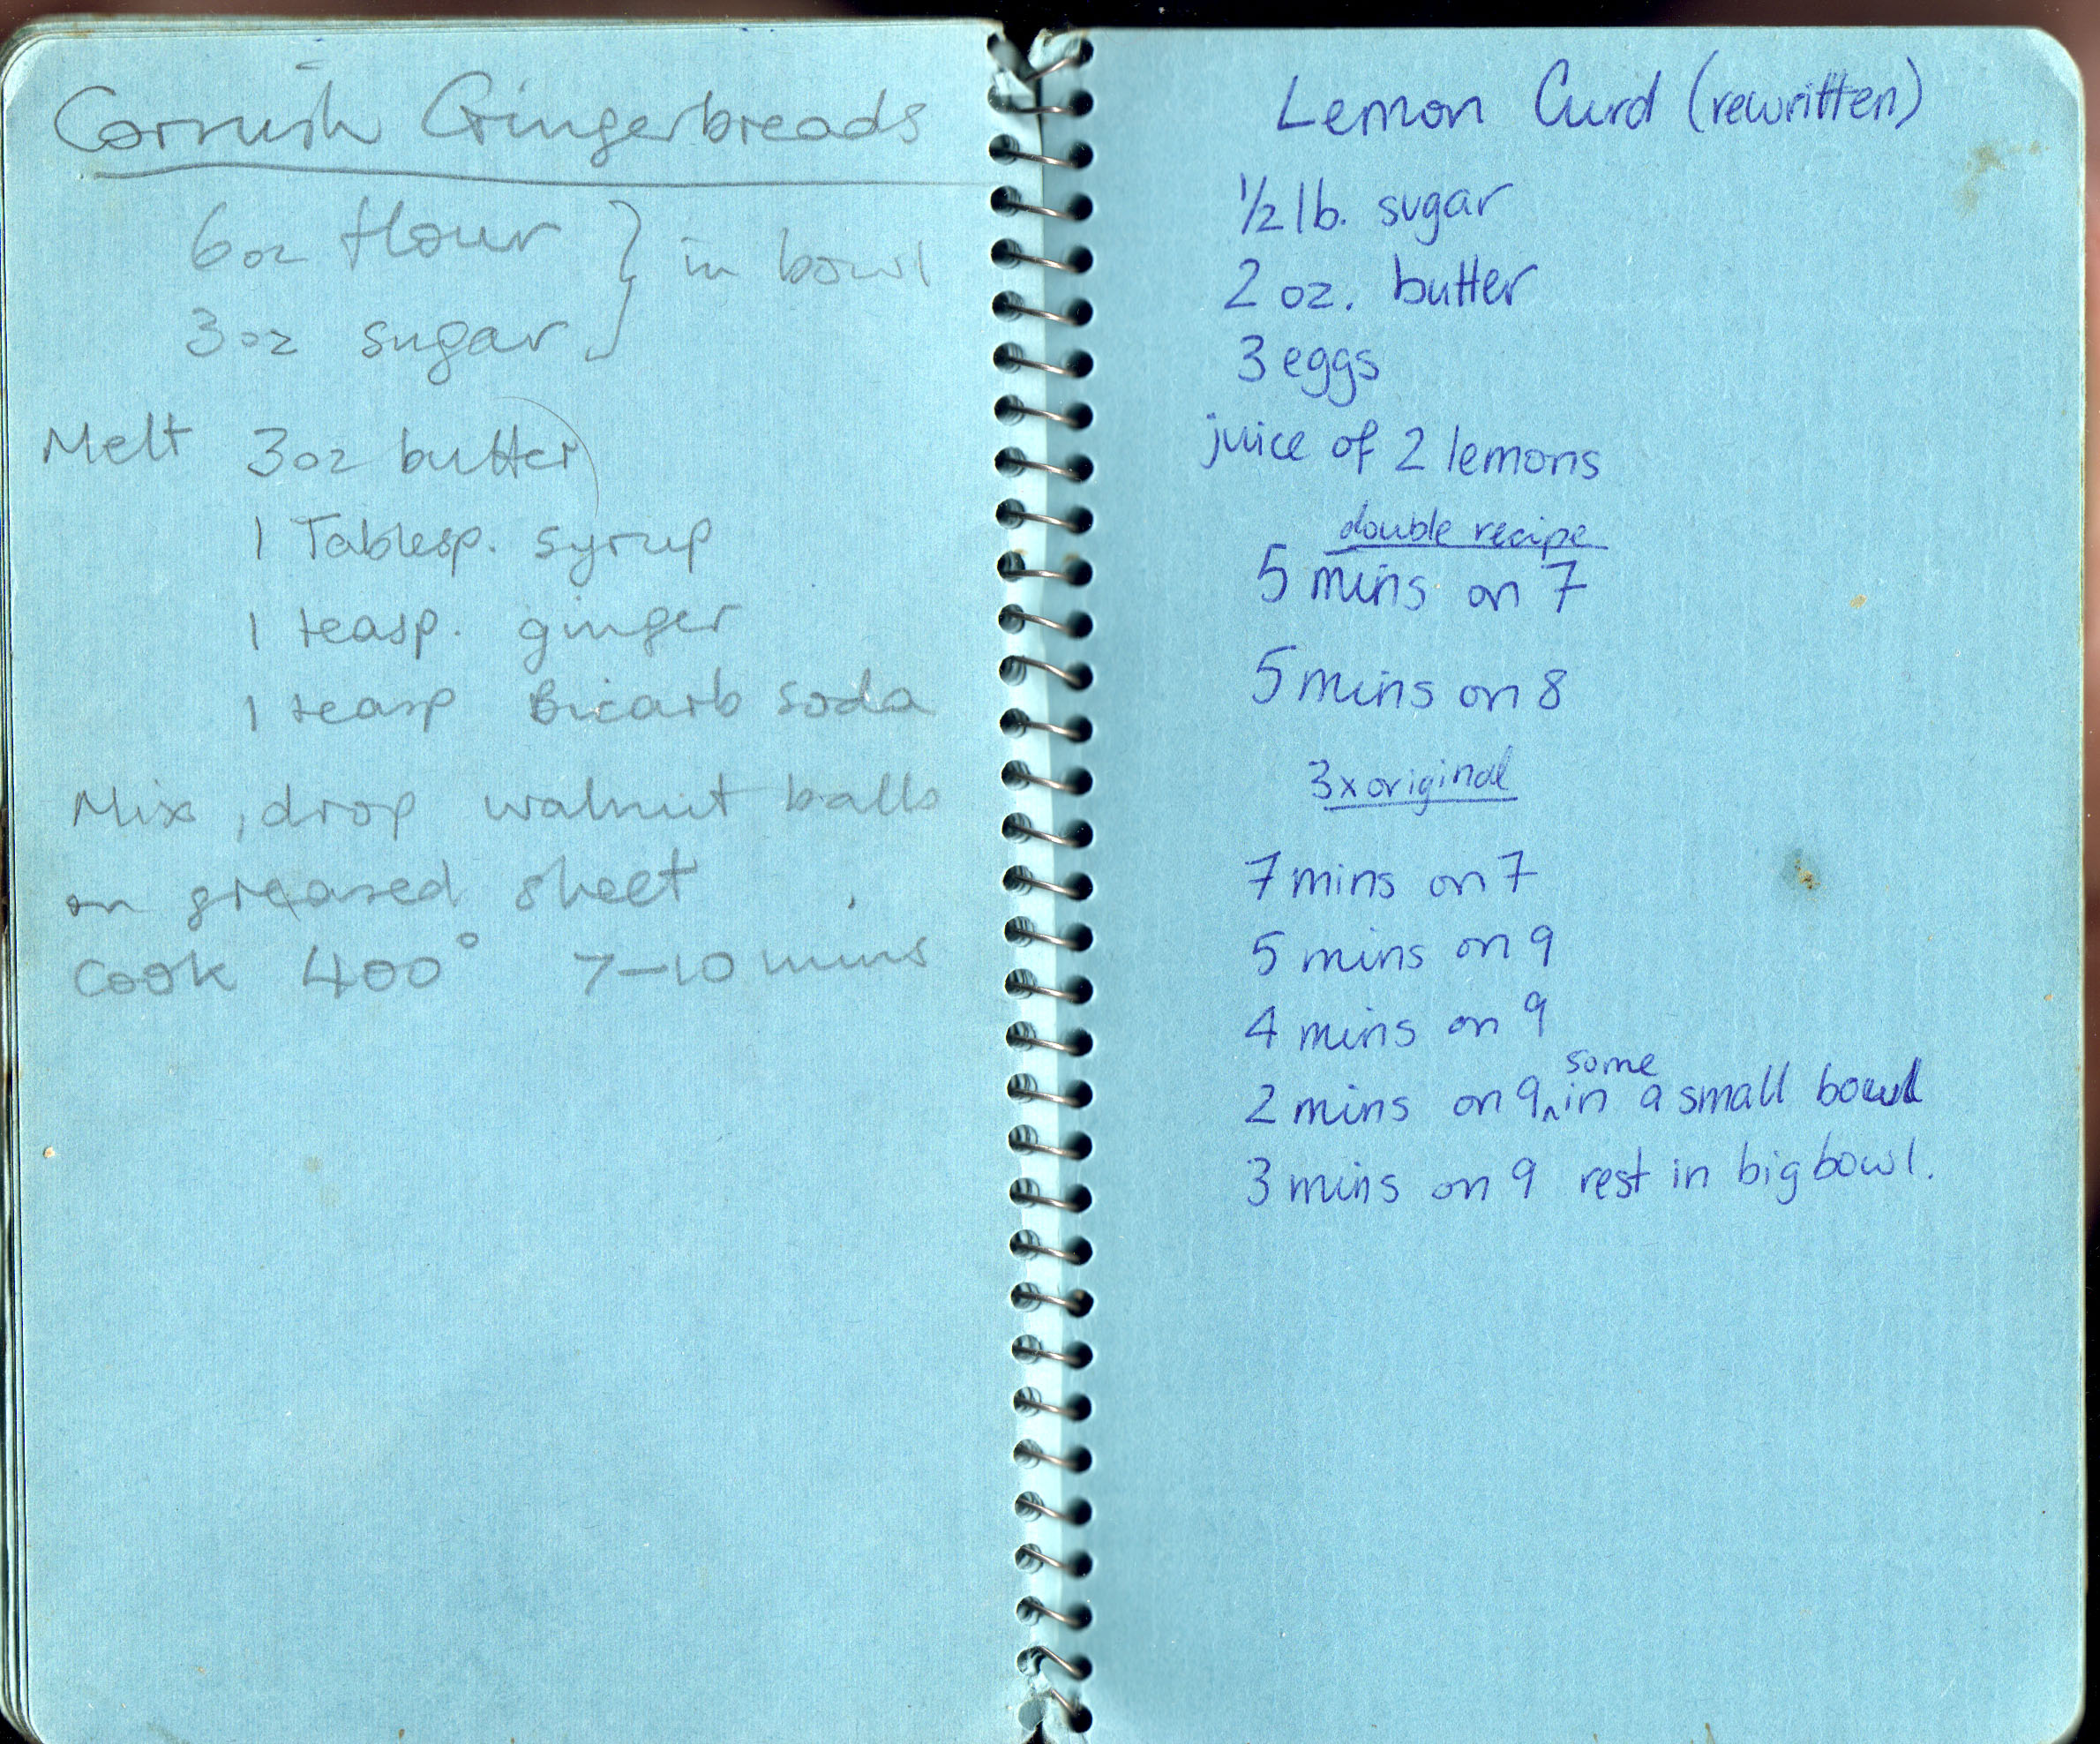 Cornish Gingerbreads
6oz flour } in bowl
3oz sugar
Melt 3oz butter
1 Tablesp. syrup
1 teasp. ginger
1 teasp Bicarb soda
Mix, drop walnut balls
on greased sheet
Cook 400° 7-10 mins
Lemon Curd (rewritten)
1/2 lb. sugar
2 oz. butter
3 eggs
juice of 2 lemons
double recipe
5 mins on 7
5 mins on 8
3x original
7 mins on 7
5 mins on 9
4 mins on 9
2 mins on 9 some in a small bowl
3 mins on 9 rest in big bowl.